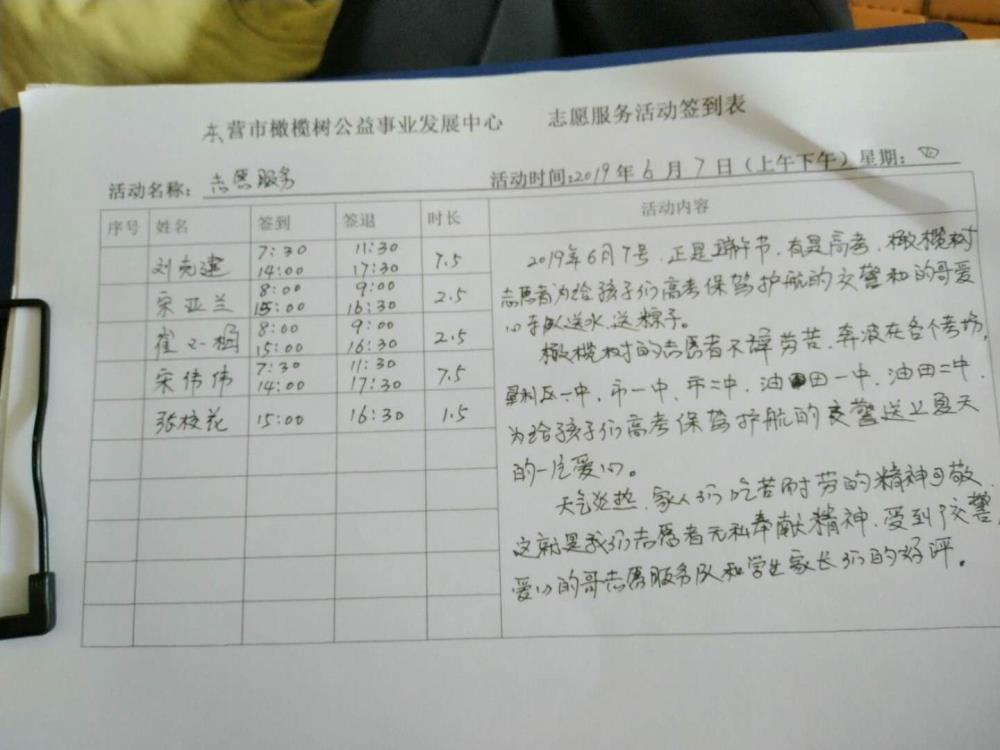 东营市橄榄树公益事业发展中心 志愿服务活动签到表
活动名称：志愿服务 活动时间:2019年6月7日（上午下午）星期：四
序号 姓名 签到 签退 时长 活动内容
刘克建 7:30 11:30 7.5
14:00 17:30
宋亚兰 8:00 9:00 2.5
15:00 16:30
崔 8:00 9:00 2.5
15:00 16:30
宋伟伟 7:30 11:30 7.5
14:00 17:30
张校花 15:00 16:30 1.5
2019年6月7号，正是端午节，有是高考，橄榄树
志愿者为给孩子们高考保驾护航的交警和的哥爱
心车队送水，送粽子。
橄榄树的志愿者不辞劳苦，奔波在各个考场，
垦利区一中，市一中，市二中，油田一中，油田二中，
为给孩子们高考保驾护航的交警送上夏天
的一片爱心。
天气炎热，家人们吃苦耐劳的精神可敬，
这就是我们志愿者无私奉献精神，受到了交警，
爱心的哥志愿服务队和学生家长们的好评。